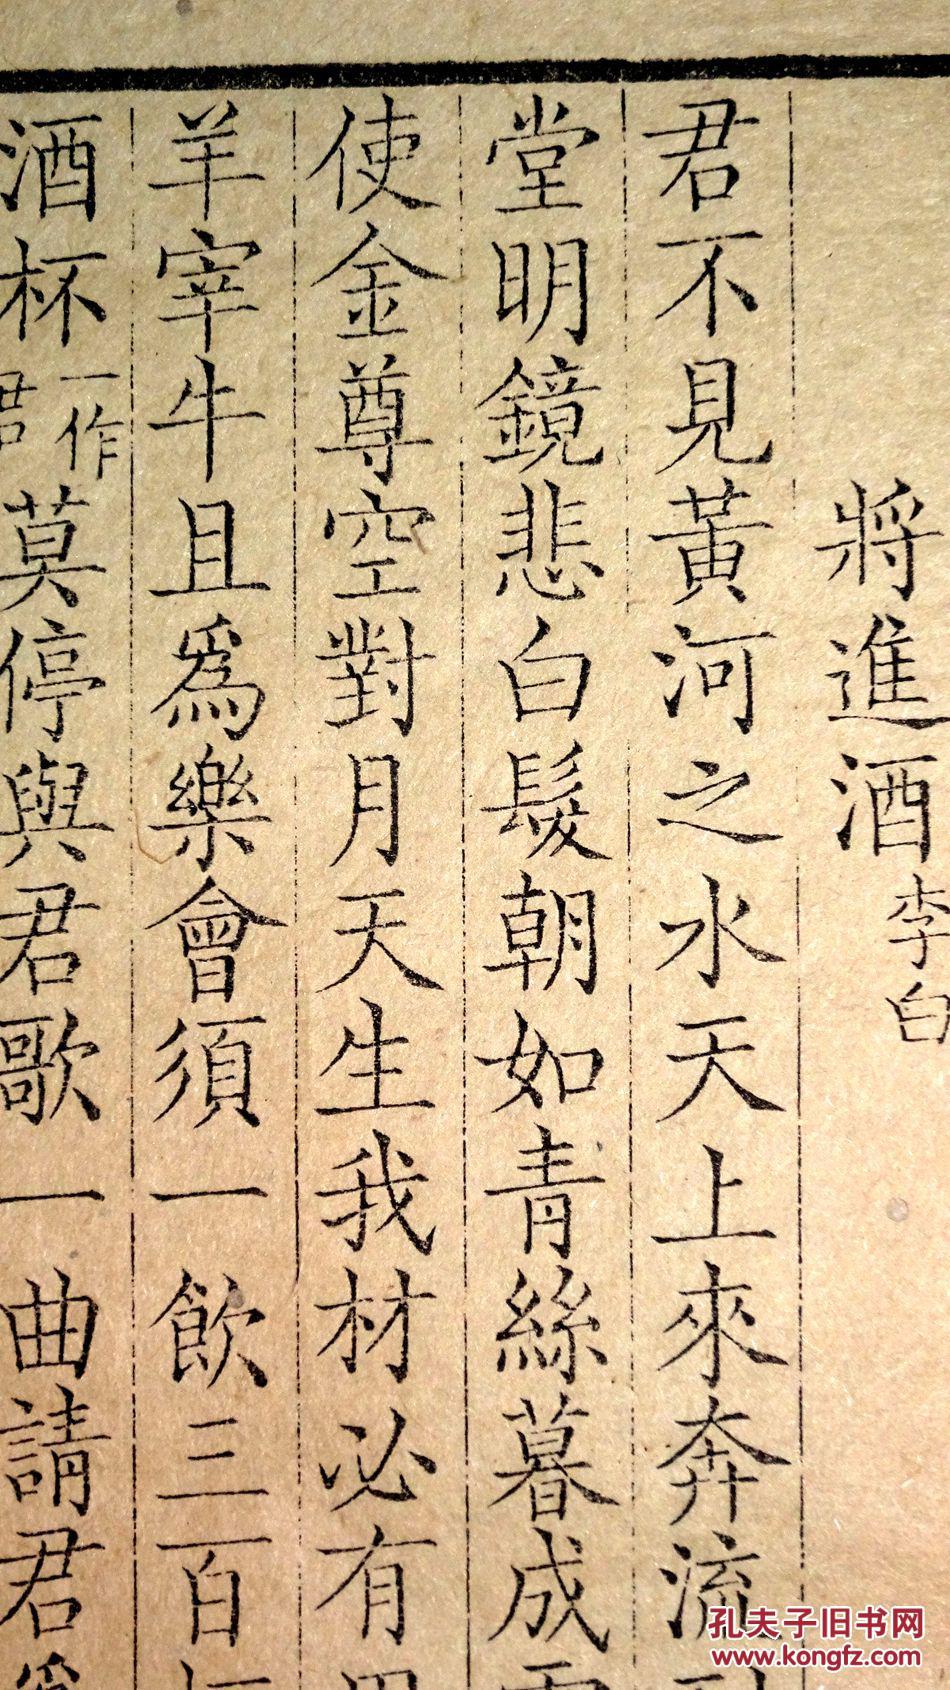 將進酒 李白
君不見黃河之水天上來奔流
堂明鏡悲白髮朝如青絲暮成
使金尊空對月天生我材必有
羊宰牛且為樂會須一飲三百
酒杯一作君莫停與君歌一曲請君
孔夫子旧书网
www.kongfz.com